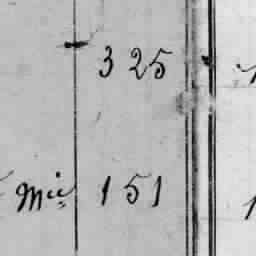 325
Mic 151